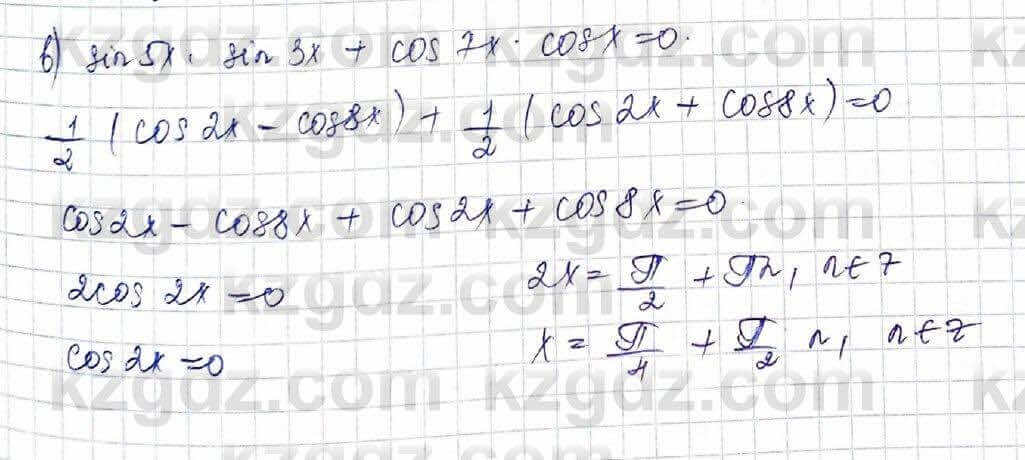 в) sin 5x · sin 3x + cos 7x · cos x = 0.
1/2 (cos 2x - cos 8x) + 1/2 (cos 2x + cos 8x) = 0
cos 2x - cos 8x + cos 2x + cos 8x = 0
2cos 2x = 0
cos 2x = 0
2x = π/2 + πn, n ∈ z
x = π/4 + π/2 n, n ∈ z
kzgdz.com
kzgdz.com
kzgdz.com
kzgdz.com
kzgdz.com